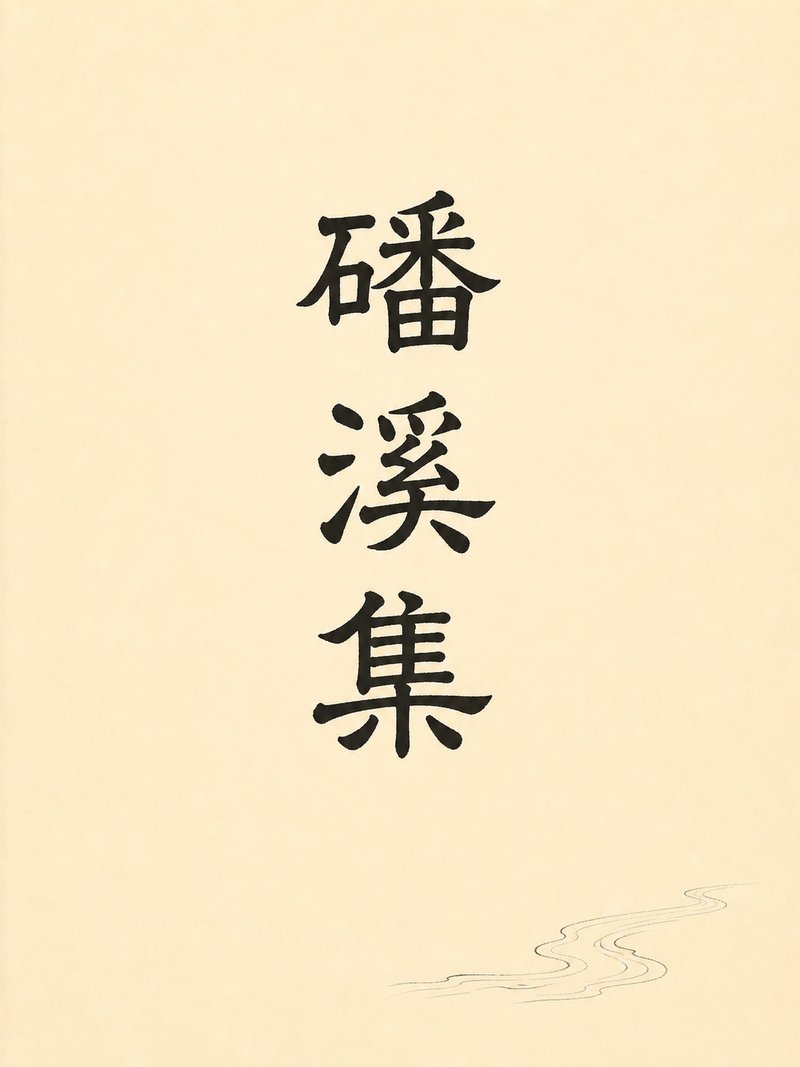 磻溪集